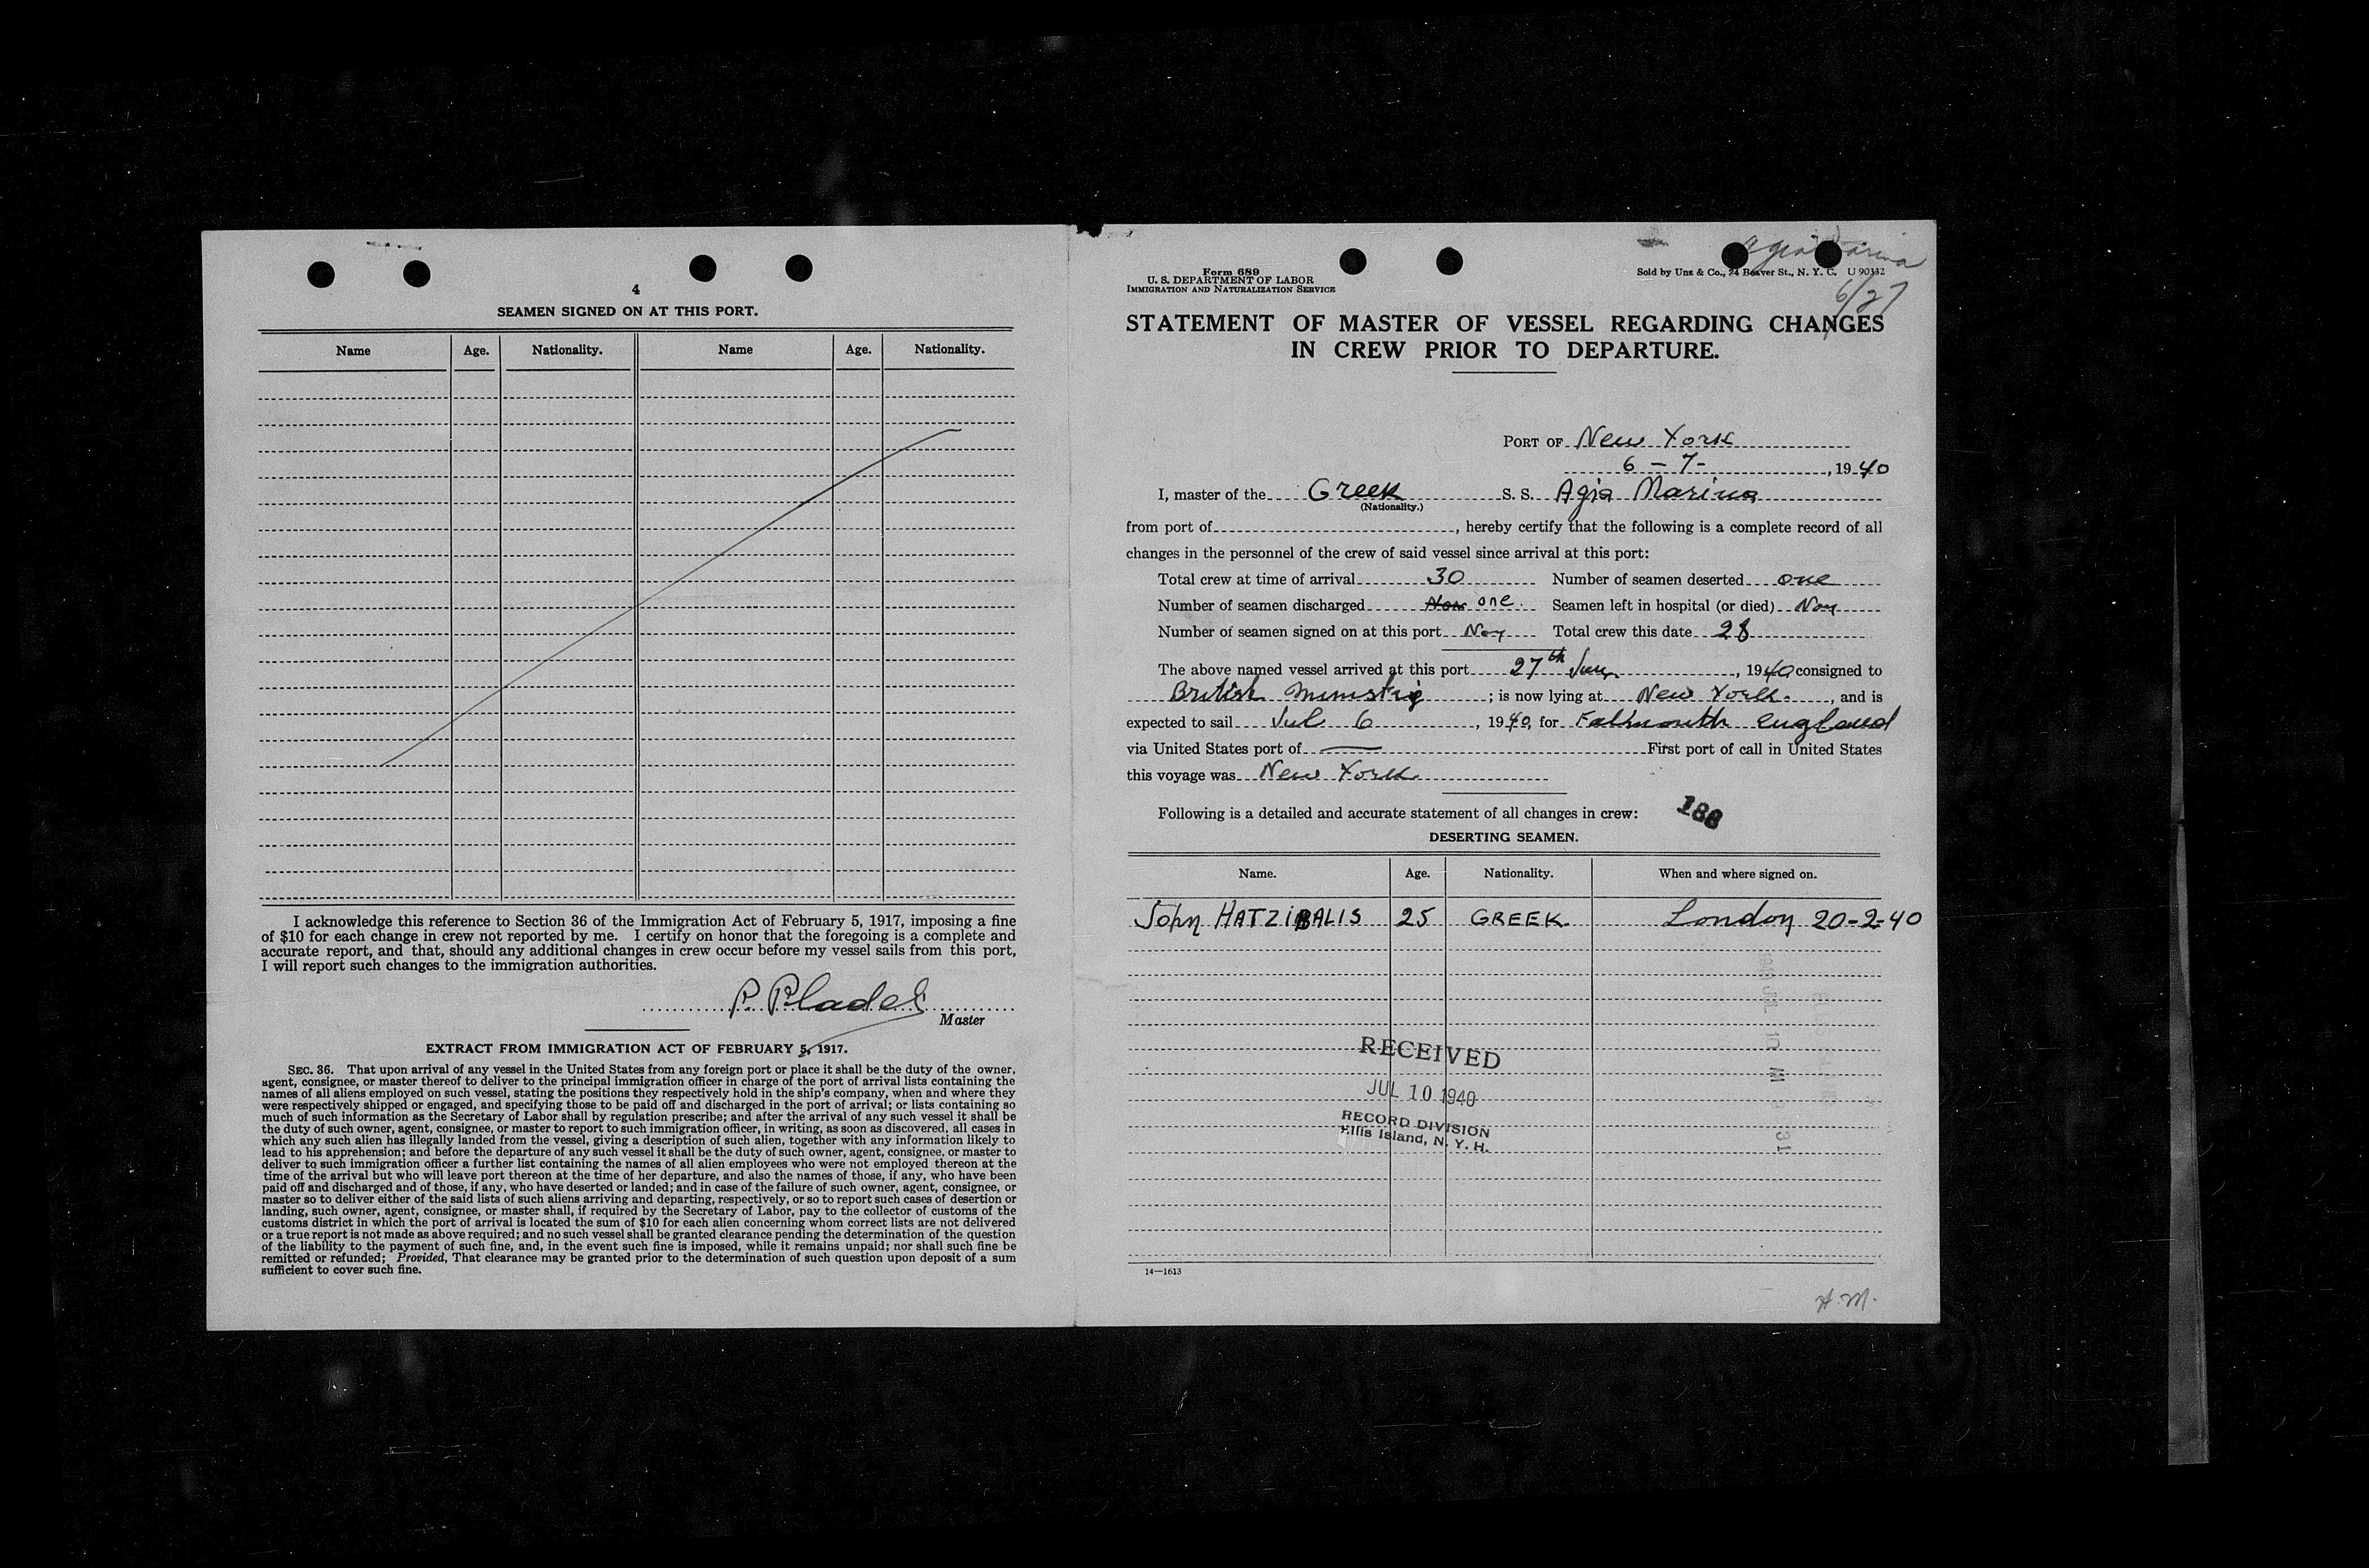 4
SEAMEN SIGNED ON AT THIS PORT.
Name Age. Nationality. Name Age. Nationality.
I acknowledge this reference to Section 36 of the Immigration Act of February 5, 1917, imposing a fine
of $10 for each change in crew not reported by me. I certify on honor that the foregoing is a complete and
accurate report, and that, should any additional changes in crew occur before my vessel sails from this port,
I will report such changes to the immigration authorities.
Master
EXTRACT FROM IMMIGRATION ACT OF FEBRUARY 5, 1917.
SEC. 36. That upon arrival of any vessel in the United States from any foreign port or place it shall be the duty of the owner,
agent, consignee, or master thereof to deliver to the principal immigration officer in charge of the port of arrival lists containing the
names of all aliens employed on such vessel, stating the positions they respectively hold in the ship's company, when and where they
were respectively shipped or engaged, and specifying those to be paid off and discharged in the port of arrival; or lists containing so
much of such information as the Secretary of Labor shall by regulation prescribe; and after the arrival of any such vessel it shall be
the duty of such owner, agent, consignee, or master to report to such immigration officer, in writing, as soon as discovered, all cases in
which any such alien has illegally landed from the vessel, giving a description of such alien, together with any information likely to
lead to his apprehension; and before the departure of any such vessel it shall be the duty of such owner, agent, consignee, or master to
deliver to such immigration officer a further list containing the names of all alien employees who were not employed thereon at the
time of the arrival but who will leave port thereon at the time of her departure, and also the names of those, if any, who have been
paid off and discharged and of those, if any, who have deserted or landed; and in case of the failure of such owner, agent, consignee, or
master so to deliver either of the said lists of such aliens arriving and departing, respectively, or so to report such cases of desertion or
landing, such owner, agent, consignee, or master shall, if required by the Secretary of Labor, pay to the collector of customs of the
customs district in which the port of arrival is located the sum of $10 for each alien concerning whom correct lists are not delivered
or a true report is not made as above required; and no such vessel shall be granted clearance pending the determination of the question
of the liability to the payment of such fine, and, in the event such fine is imposed, while it remains unpaid; nor shall such fine be
remitted or refunded; Provided, That clearance may be granted prior to the determination of such question upon deposit of a sum
sufficient to cover such fine.
Form 689
U. S. DEPARTMENT OF LABOR
IMMIGRATION AND NATURALIZATION SERVICE
Agia Marina
Sold by Unz & Co., 24 Beaver St., N. Y. C. U 90332
6/27
STATEMENT OF MASTER OF VESSEL REGARDING CHANGES
IN CREW PRIOR TO DEPARTURE.
PORT OF New York
6 - 7 - , 1940
I, master of the Greek S. S. Agia Marina
(Nationality.)
from port of , hereby certify that the following is a complete record of all
changes in the personnel of the crew of said vessel since arrival at this port:
Total crew at time of arrival 30 Number of seamen deserted one
Number of seamen discharged one Seamen left in hospital (or died) Non
Number of seamen signed on at this port Non Total crew this date 28
The above named vessel arrived at this port 27th Jun , 1940 consigned to
British Ministry ; is now lying at New York , and is
expected to sail Jul 6 , 1940, for Falmouth England
via United States port of — First port of call in United States
this voyage was New York
Following is a detailed and accurate statement of all changes in crew: 188
DESERTING SEAMEN.
Name. Age. Nationality. When and where signed on.
John HATZIBALIS 25 GREEK London 20-2-40
RECEIVED
JUL 10 1940
RECORD DIVISION
Ellis Island, N. Y. H.
14—1613
H.M.